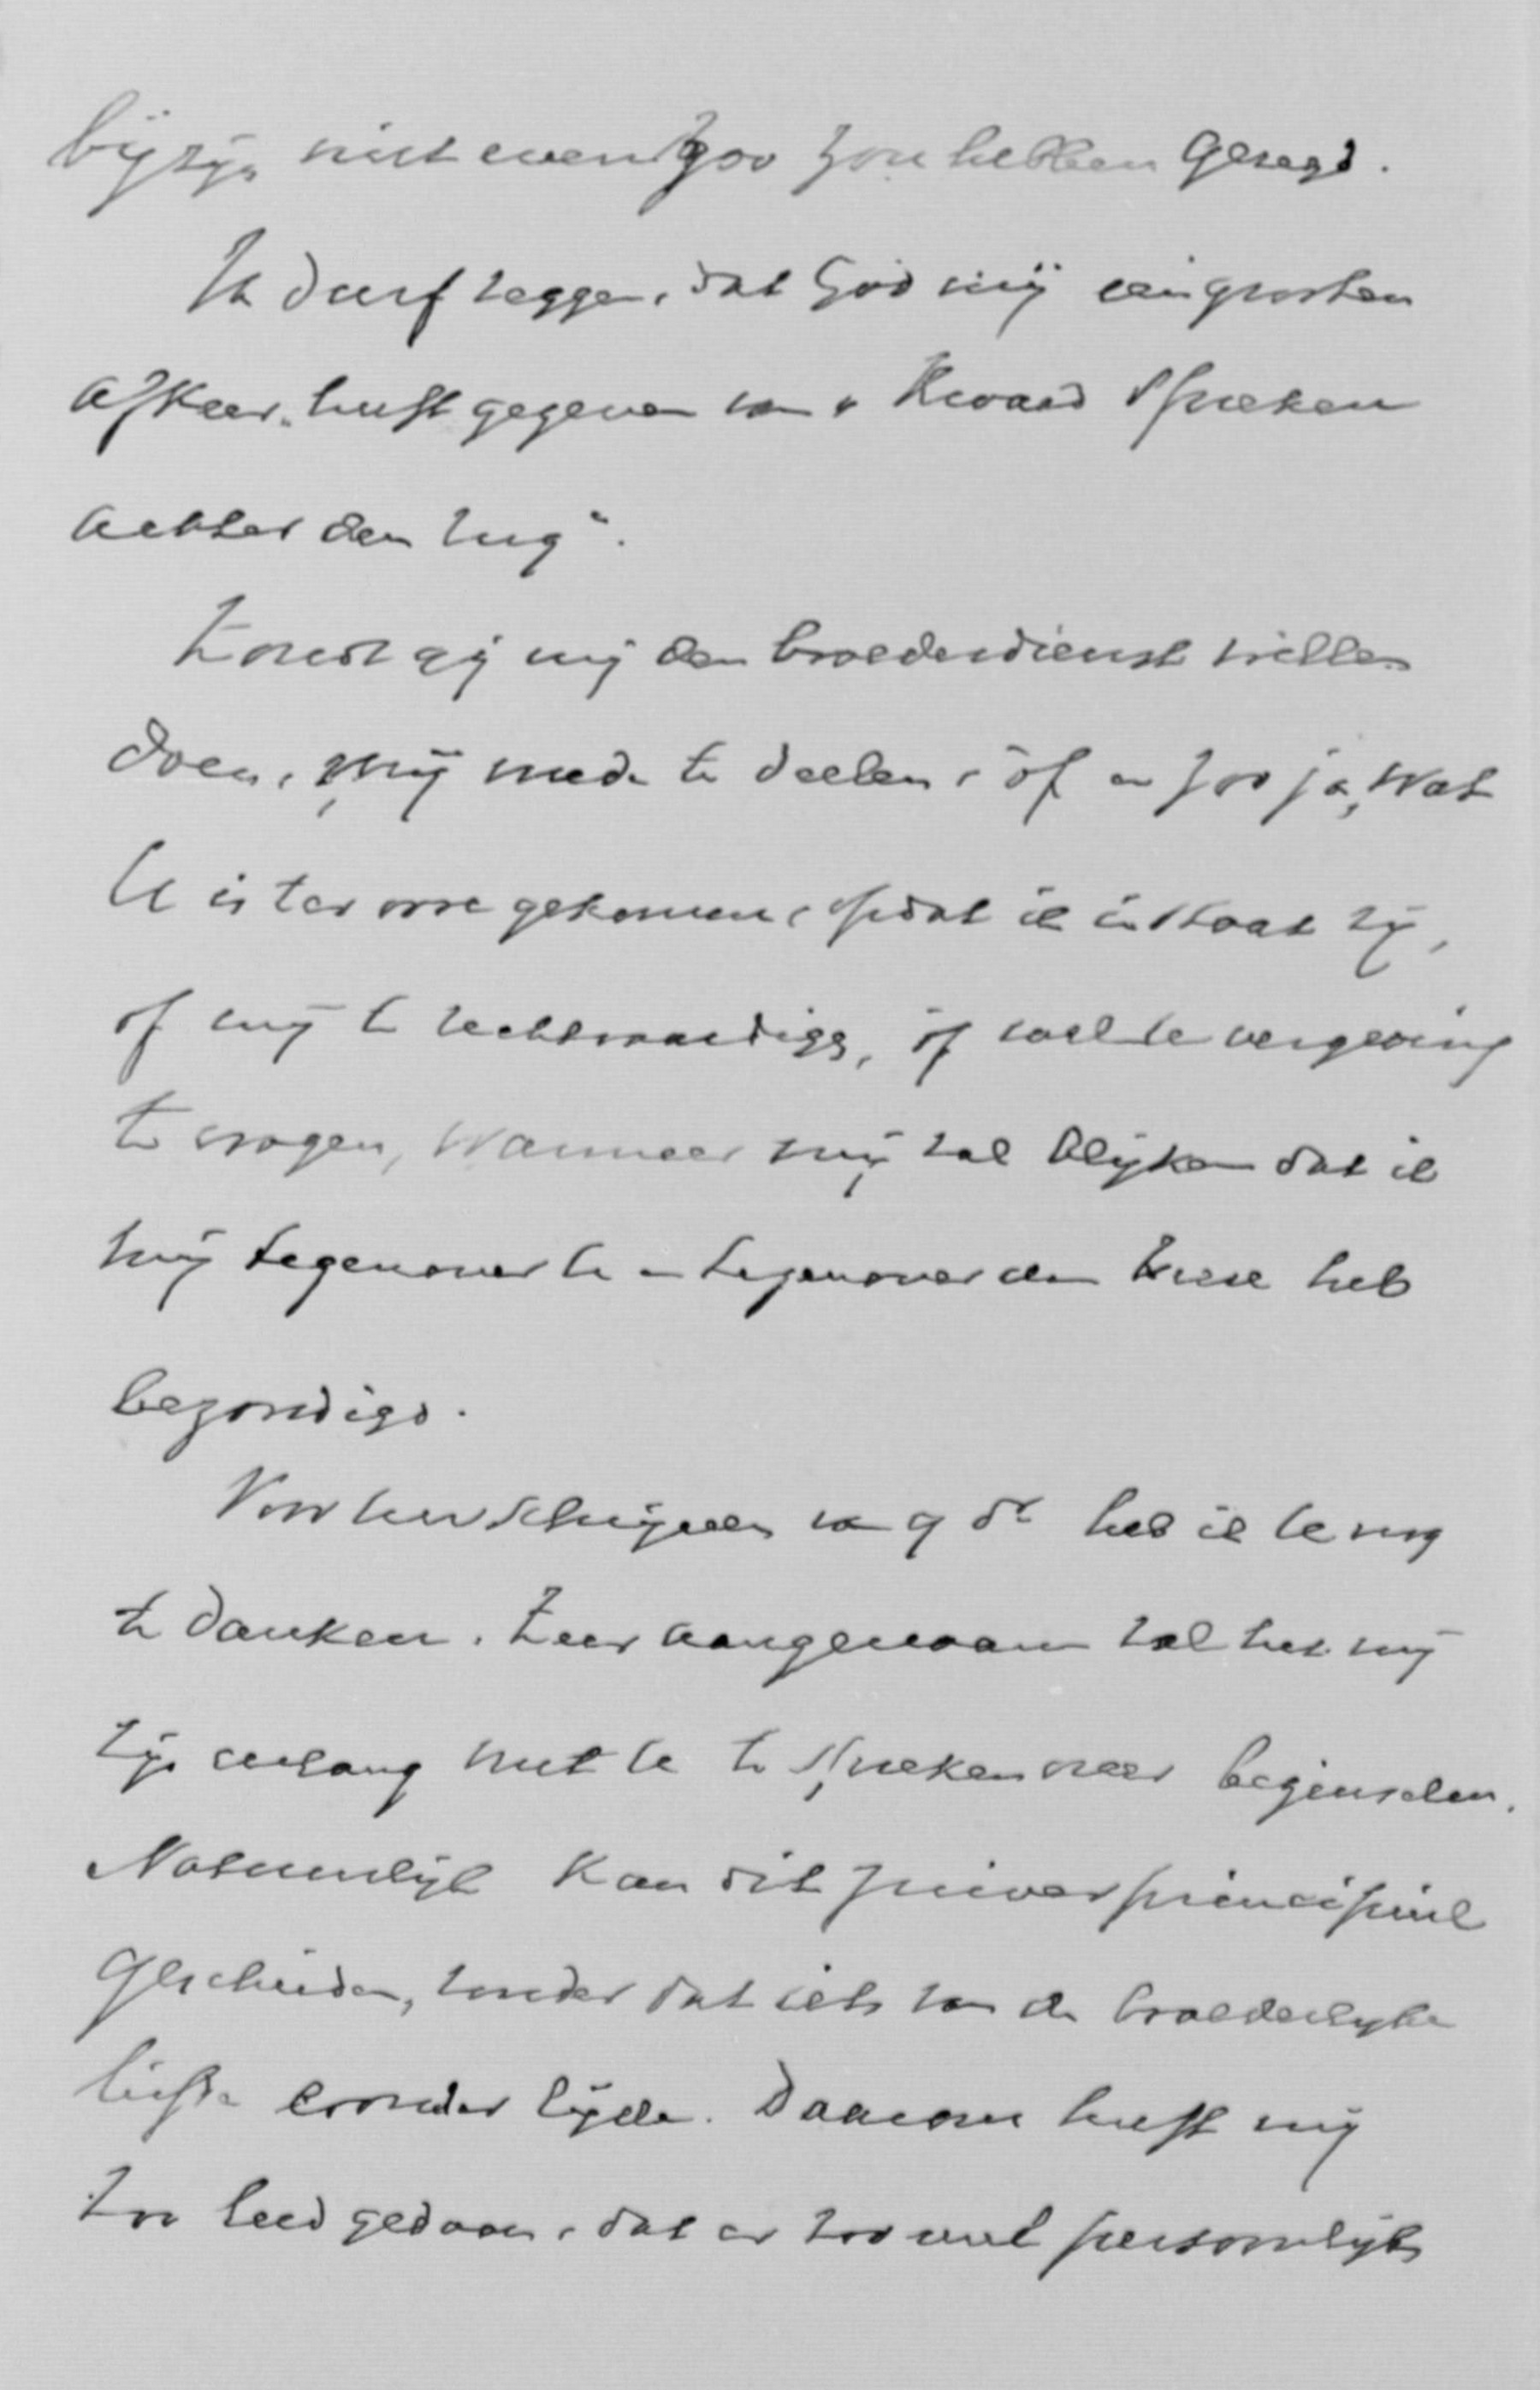 bijzijn niet evenzoo zou hebben gezegd.
Ik durf zeggen, dat God mij een grooten
afkeer heeft gegeven van „Kwaad spreken
achter den rug".
Zoudt gij mij den broederdienst willen
doen, mij mede te deelen, óf en zoo ja, wat
U is ter oore gekomen, opdat ik in staat zij,
of mij te rechtvaardigen, óf wel Ue vergeving
te vragen, wanneer mij zal blijken dat ik
mij tegenover Ue en tegenover den Heere heb
bezondigd.
Voor het schrijven van 9 dr heb ik Ue nog
te danken. Zeer aangenaam zal het mij
zijn eerlang met Ue te spreken over beginselen.
Natuurlijk kan dit zuiver principieel
geschieden, zonder dat iets van de broederlijke
liefde eronder lijde. Daarom heeft mij
zoo leed gedaan, dat er zooveel persoonlijks